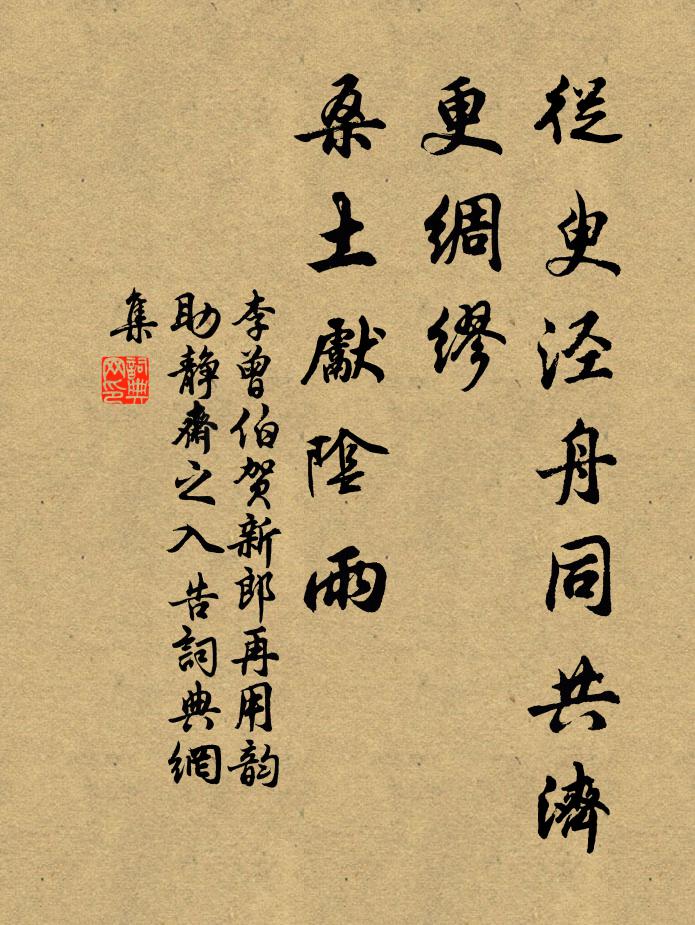 從臾涇舟同共濟
更綢繆
桑土獻陰雨
李曾伯贺新郎再用韵
助静齋之入告詞典網
集
詞典网印